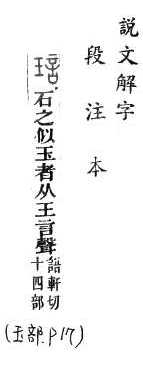 説文解字
段注本
琂 石之似玉者从王言聲
語軒切
十四部
(玉部.P17)